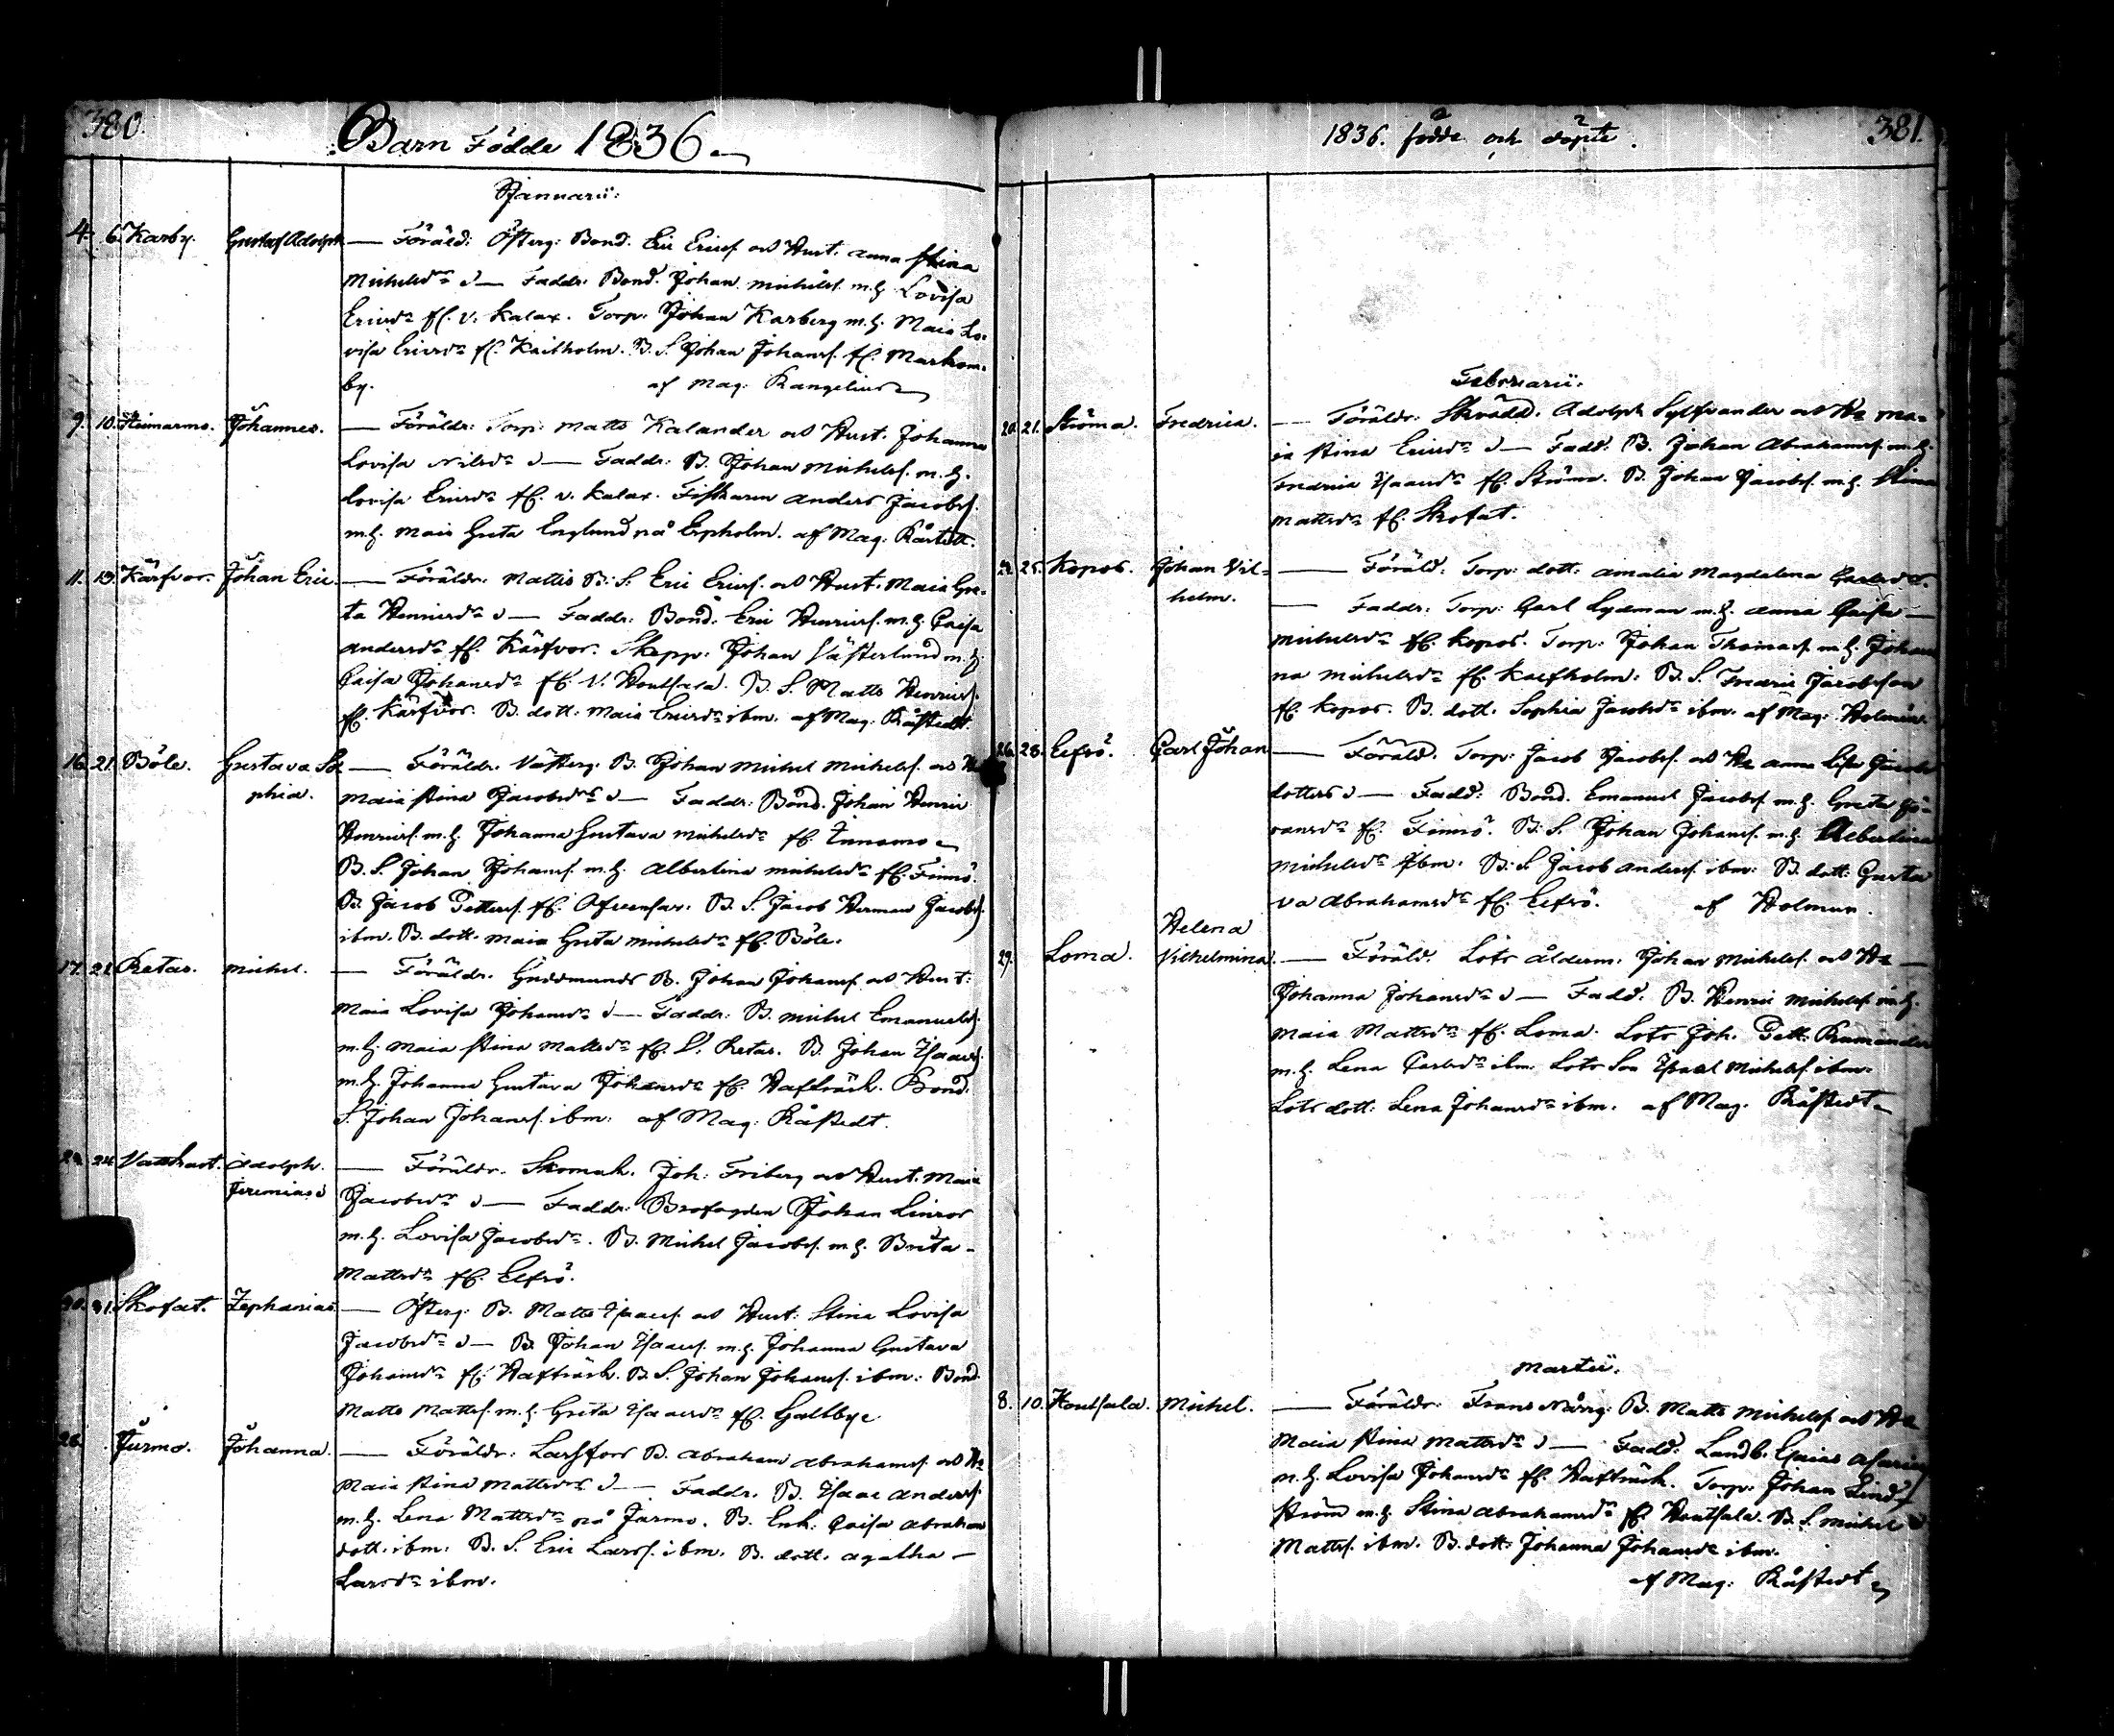 380.
Barn Födde 1836.
Januarii:
4. 6. Karby. Gustaf Adolph — Föräld: Österg: Bond. Eric Ericss. och Hust. Anna Stina
Michelsdr — Faddr. Bond. Johan Michelss. m.h. Lovisa
Ericsdr fr. V. Kalax. Torp. Johan Karberg m.h. Maia Lo-
visa Ericsdr fr. Kaitholm. B.S. Johan Johanss. fr. Markom-
by. af Mag: Rangelius
9. 10. Heimarmo. Johannes. — Föräldr: Torp: Matts Kalander och Hust. Johanna
Lovisa Nilsdr — Faddr: B. Johan Michelss. m.h.
Lovisa Ericsdr fr. V. Kalax. Fiskaren Anders Jacobss.
m.h. Maia Greta Englund på Erpholm. af Mag.
11. 13. Kärfvor. Johan Eric. — Föräldr: Mattis B.S. Eric Ericss. och Hust. Maia Gre-
ta Henricsdr — Faddr: Bond. Eric Henricss. m.h. Caisa
Andersdr fr. Kärfvor. Skepp: Johan Västerlund m.h.
Caisa Johansdr fr. V. Houtsala. B.S. Matts Henricss.
fr. Kärfvor. B. dott. Maia Ericsdr ibm. af Mag: Råstedt.
16. 21. Böle. Gustava So
phia. — Föräldr. Västerg. B. Johan Michel Michelss. och H
Maia Stina Jacobsdr — Faddr: Bond. Johan Henric
Henricss. m.h. Johanna Gustava Michelsdr fr. Innamo
B.S. Johan Johanss. m.h. Albertina Michelsdr fr. Finnö.
B. Jacob Petterss. fr. B.S. Jacob Herman Jacobss.
ibm. B. dott. Maia Greta Michelsdr fr. Böle.
17. 21. Retas. Michel. — Föräldr. Guddmunds B. Johan Johanss. och Hust:
Maia Lovisa Johansdr — Faddr: B. Michel Emanuelss.
m.h. Maia Stina Mattsdr fr. L. Retas. B. Johan Isaacss.
m.h. Johanna Gustava Johansdr fr. Hafträsk. Bond.
S. Johan Johanss. ibm: af Mag: Råstedt.
24. Adolph.
Jeremias — Föräldr. Skomak. Joh: Friberg och Hust. Maia
Jacobsdr — Faddr: Brofogden Johan Linros
m.h. Lovisa Jacobsdr. B. Michel Jacobss. m.h. Brita
Mattsdr fr. Elfsö.
30. 31. Skofat. Zephanias. — Österg: B. Matts Isaacss. och Hust: Stina Lovisa
Jacobsdr — B. Johan Isaacss. m.h. Johanna Gustava
Johansdr fr. Hafträsk. B.S. Johan Johanss. ibm: Bond.
Matts Mattss. m.h. Greta Isaacsdr fr. Galtbye
26. Jurmo. Johanna. — Föräldr: Larsfors B. Abraham Abrahamss. och H
Maia Stina Mattsdr — Faddr. B. Isaac Anderss.
m.h. Lena Mattsdr på Jurmo. B. Enk: Caisa Abraham
dott. ibm. B.S. Eric Larss. ibm. B. dott. Agatha
Larsdr ibm.
1836. födde och döpte. 381.
Februarii.
20. 21. Ströma. Fredrica. — Föräldr: Skrädd. Adolph Sylfvander och H Ma-
ia Stina Ericsdr — Fadd: B. Johan Abrahamss. m.h.
Fredrica Isaacsdr fr. Ströma. B. Johan Jacobss. m.h. Stina
Mattsdr fr. Skofat.
25. Kopos. Johan Vil-
helm. — Föräld: Torp: dott. Amalia Magdalena Carlsdr
— Faddr: Torp: Carl Sydman m.h. Anna Caisa
Michelsdr fr. Kopos. Torp: Johan Thomass. m.h. Johan
na Michelsdr fr. Kaefholm: B.S. Fredric Jacobsson
fr. Kopos. B. dott. Sophia Jacobsdr ibm. af Mag: Holmün.
26. 28. Elfsö. Carl Johan — Föräld. Torp: Jacob Jacobss. och H Anna Lisa Jacobs
dotter — Fadd: Bond. Emanuel Jacobss. m.h. Greta Gö-
ransdr fr. Finnö. B.S. Johan Johanss. m.h. Albertina
Michelsdr ibm. B.S. Jacob Anderss. ibm: B. dott: Gusta
va Abrahamsdr fr. Elfsö. af Holmun.
29. Loma. Helena
Vilhelmina. — Föräld. Lots ålderm. Johan Michelss. och H
Johanna Johansdr — Fadd. B. Henric Michelss. m.h.
Maia Mattsdr fr. Loma. Lots Joh. Pett. Ramander
m.h. Lena Carlsdr ibm. Lots Son Isaac Michelss. ibm.
Lots dott. Lena Johansdr ibm. af Mag. Råstedt
Martii.
8. 10. Houtsala. Michel. — Föräldr: Frans Norrg: B. Matts Michelss. och H
Maia Stina Mattsdr — Fadd: Landb. Esaias Asarias
m.h. Lovisa Johansdr fr. Hafträsk. Torp: Johan Lind-
ström m.h. Stina Abrahamsdr fr. Houtsala. B.S. Michel
Mattss. ibm. B. dott. Johanna Johansdr ibm.
af Mag: Råstedt